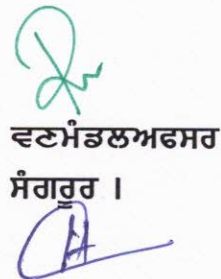 ਵਣਮੰਡਲਅਫਸਰ
ਸੰਗਰੂਰ ।